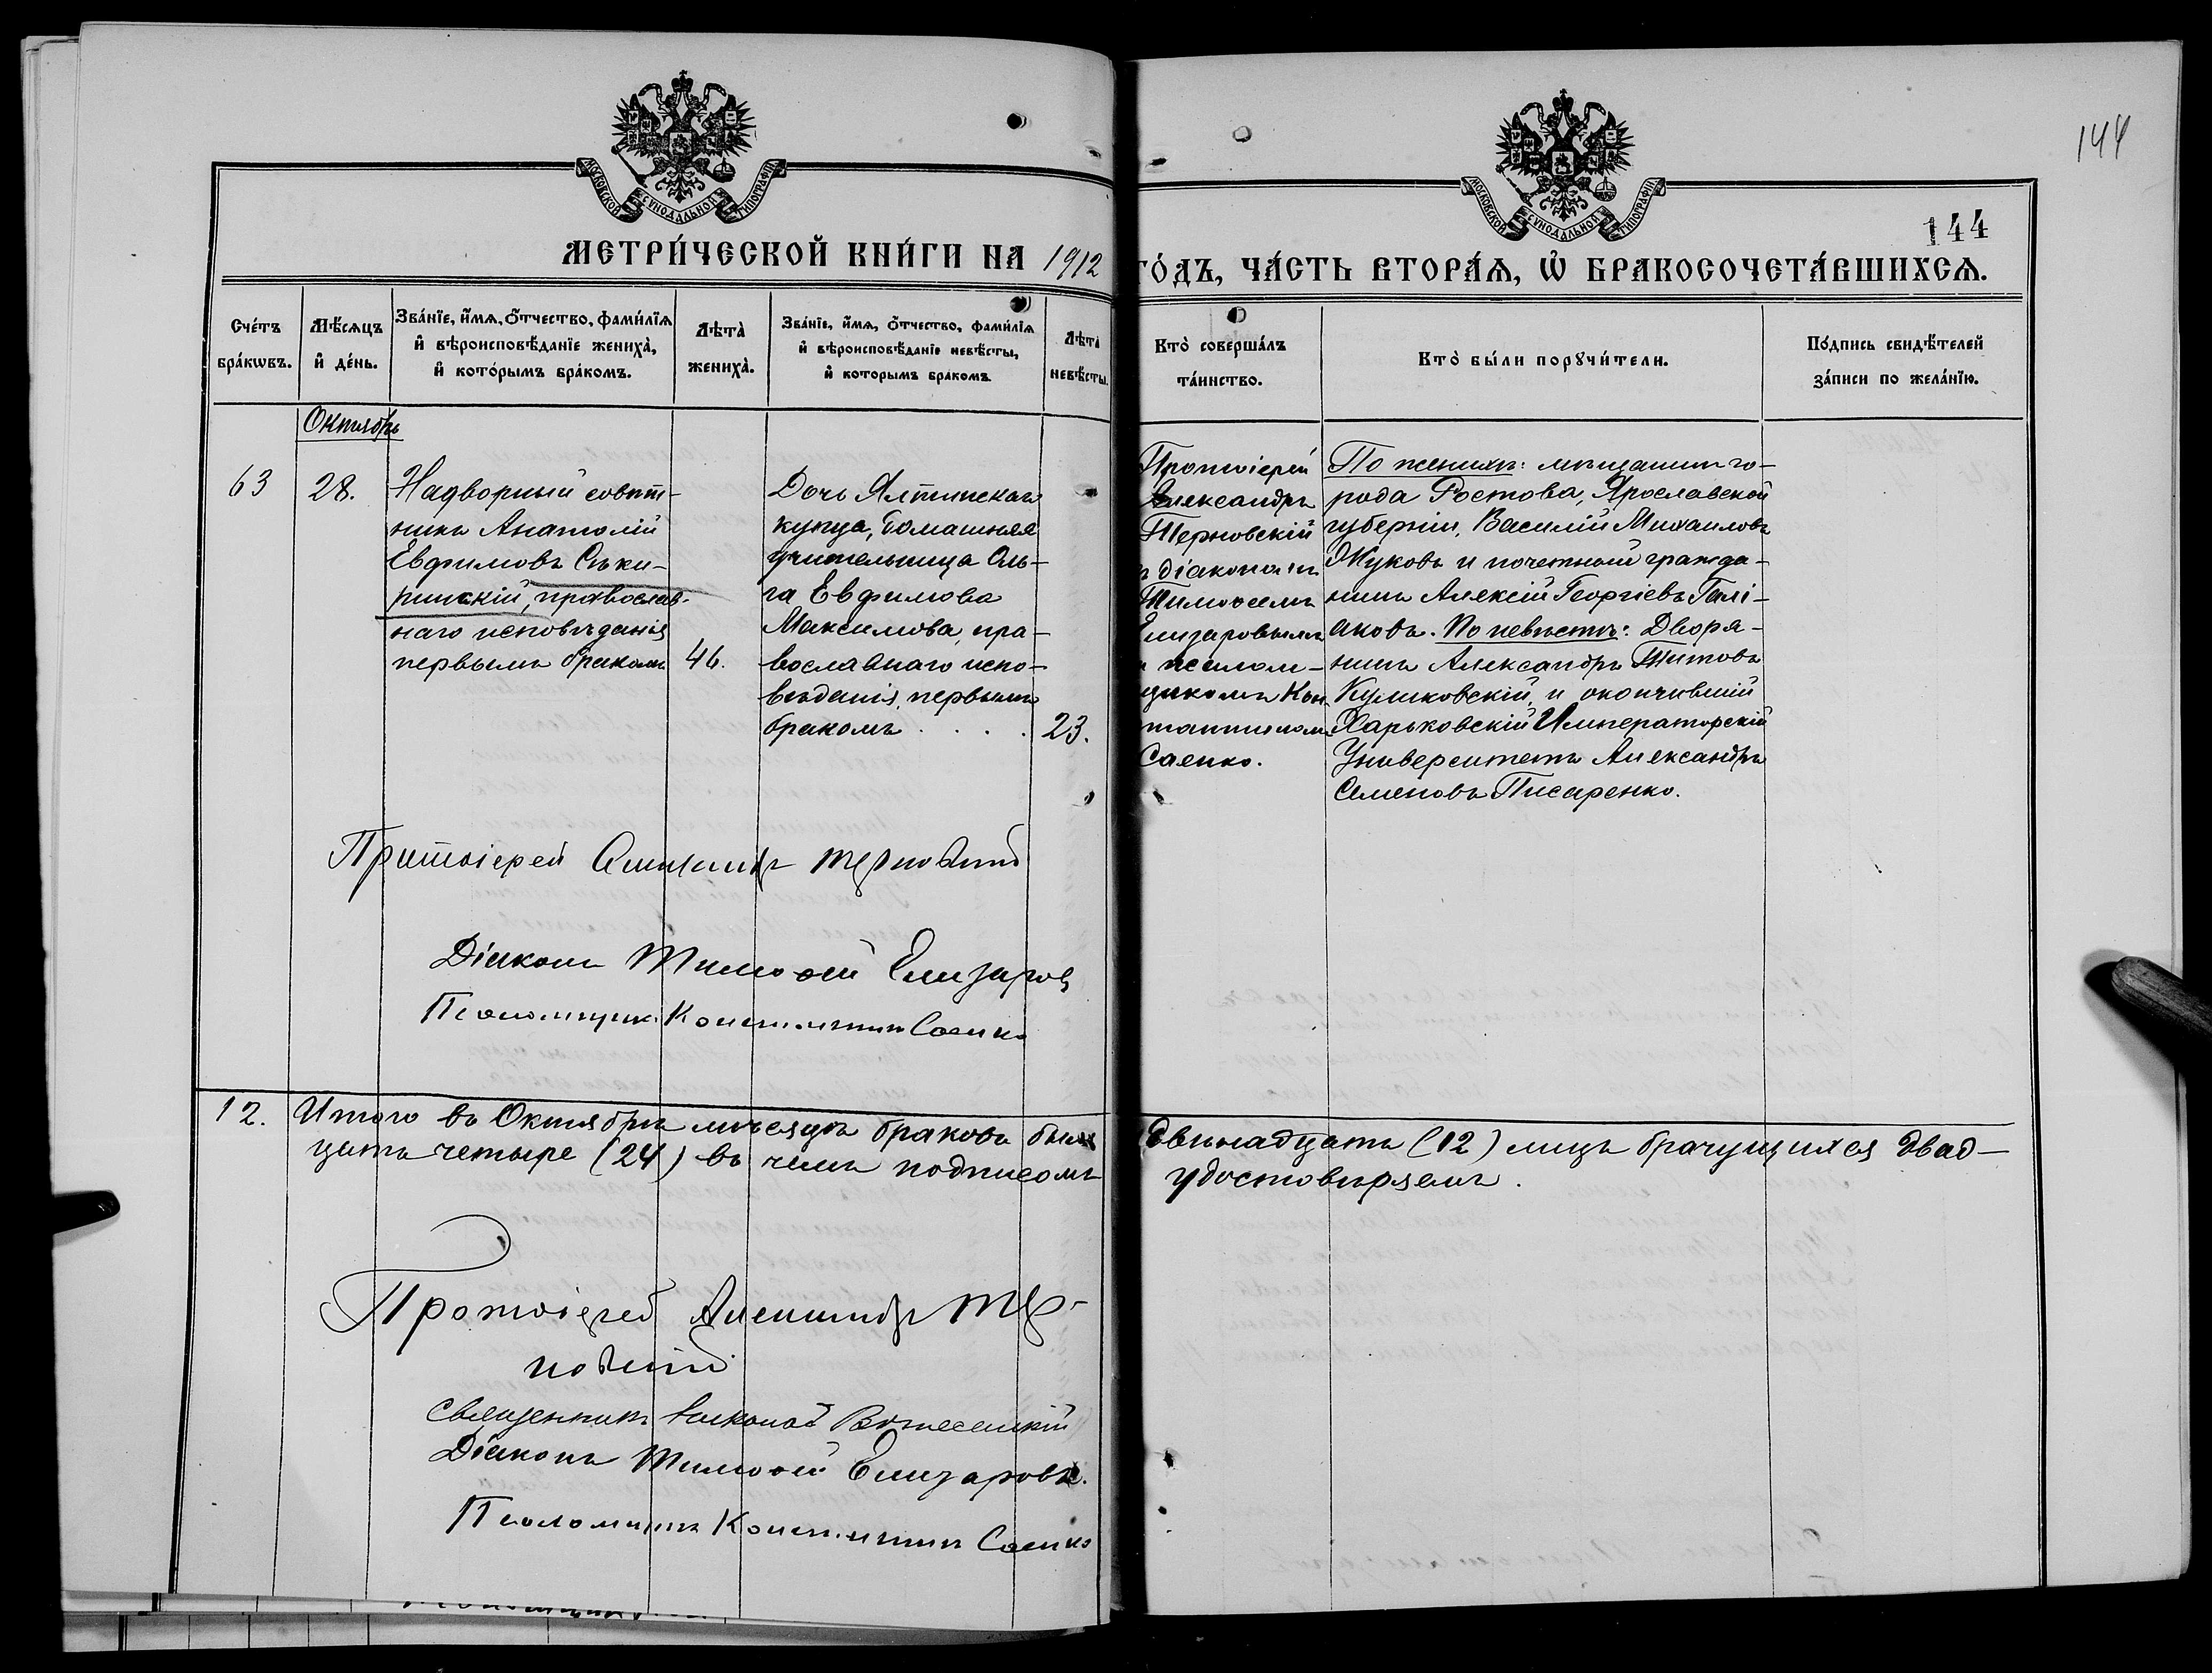 144
МОСКОВСКОЙ СѴНОДАЛЬНОЙ ТИПОГРАФІИ
МОСКОВСКОЙ СѴНОДАЛЬНОЙ ТИПОГРАФІИ
144
МЕТРИ́ЧЕСКОЙ КНИ́ГИ НА 1912 ГО́ДЪ, ЧА́СТЬ ВТОРА́Ѧ, Ѡ҆ БРАКОСОЧЕТА́ВШИХСѦ.
Сче́тъ бра́кѡвъ.
Мѣ́сѧцъ и҆ де́нь.
Зва́нїе, и҆́мѧ, о҆́тчество, фами́лїѧ
и҆ вѣроисповѣ́данїе жениха̀,
и҆ кото́рымъ бра́комъ.
Лѣта̀ жениха̀.
Зва́нїе, и҆́мѧ, о҆́тчество, фами́лїѧ
и҆ вѣроисповѣ́данїе невѣ́сты,
и҆ которымъ бракомъ.
Лѣта̀ невѣ́сты.
Кто̀ соверша́лъ
та́инство.
Кто̀ бы́ли порꙋчи́тели.
По́дпись свидѣ́телей
за́писи по жела́нїю.
Октябрь
63
28.
Надворный совѣт-
никъ Анатолій
Евфимовъ Сѣки-
ринскій, православ-
наго исповѣданія
первымъ бракомъ
46.
Дочь Ялтинскаго
купца, домашняя
учительница Оль-
га Евфимова
Максимова, пра-
вославнаго испо-
вѣданія, первымъ
бракомъ . . . .
23.
Протоіерей
Александръ
Терновскій
съ діакономъ
Тимоѳеемъ
Елизаровымъ
и псалом-
щикомъ Кон
стантиномъ
Саенко.
По женихѣ: мѣщанинъ го-
рода Ростова, Ярославской
губерніи, Василій Михаиловъ
Жуковъ и почетный гражда-
нинъ Алексій Георгіевъ Галі-
аковъ. По невѣстѣ: Дворя-
нинъ Александръ Титовъ
Куликовскій, и окончившій
Харьковскій Императорскій
Университетъ Александръ
Семеновъ Писаренко.
Протоіерей Александръ Терновскій
Діаконъ Тимоѳей Елизаровъ
Псаломщикъ Константинъ Саенко
12.
Итого въ Октябрѣ мѣсяцѣ браковъ было двѣнадцать (12) лицъ брачущихся двад-
цать четыре (24) въ чемъ подписомъ удостовѣряемъ.
Протоіерей Александръ Тер-
новскій
Священникъ Николай Вознесенскій
Діаконъ Тимоѳей Елизаровъ.
Псаломщикъ Константинъ Саенко